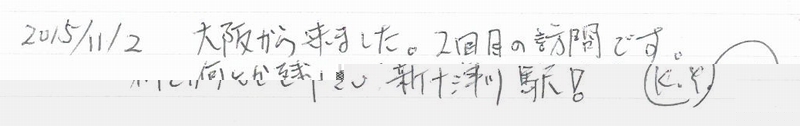 2015/11/2 大阪から来ました。2回目の訪問です。
何とか 新十津川駅! (K.Y.)